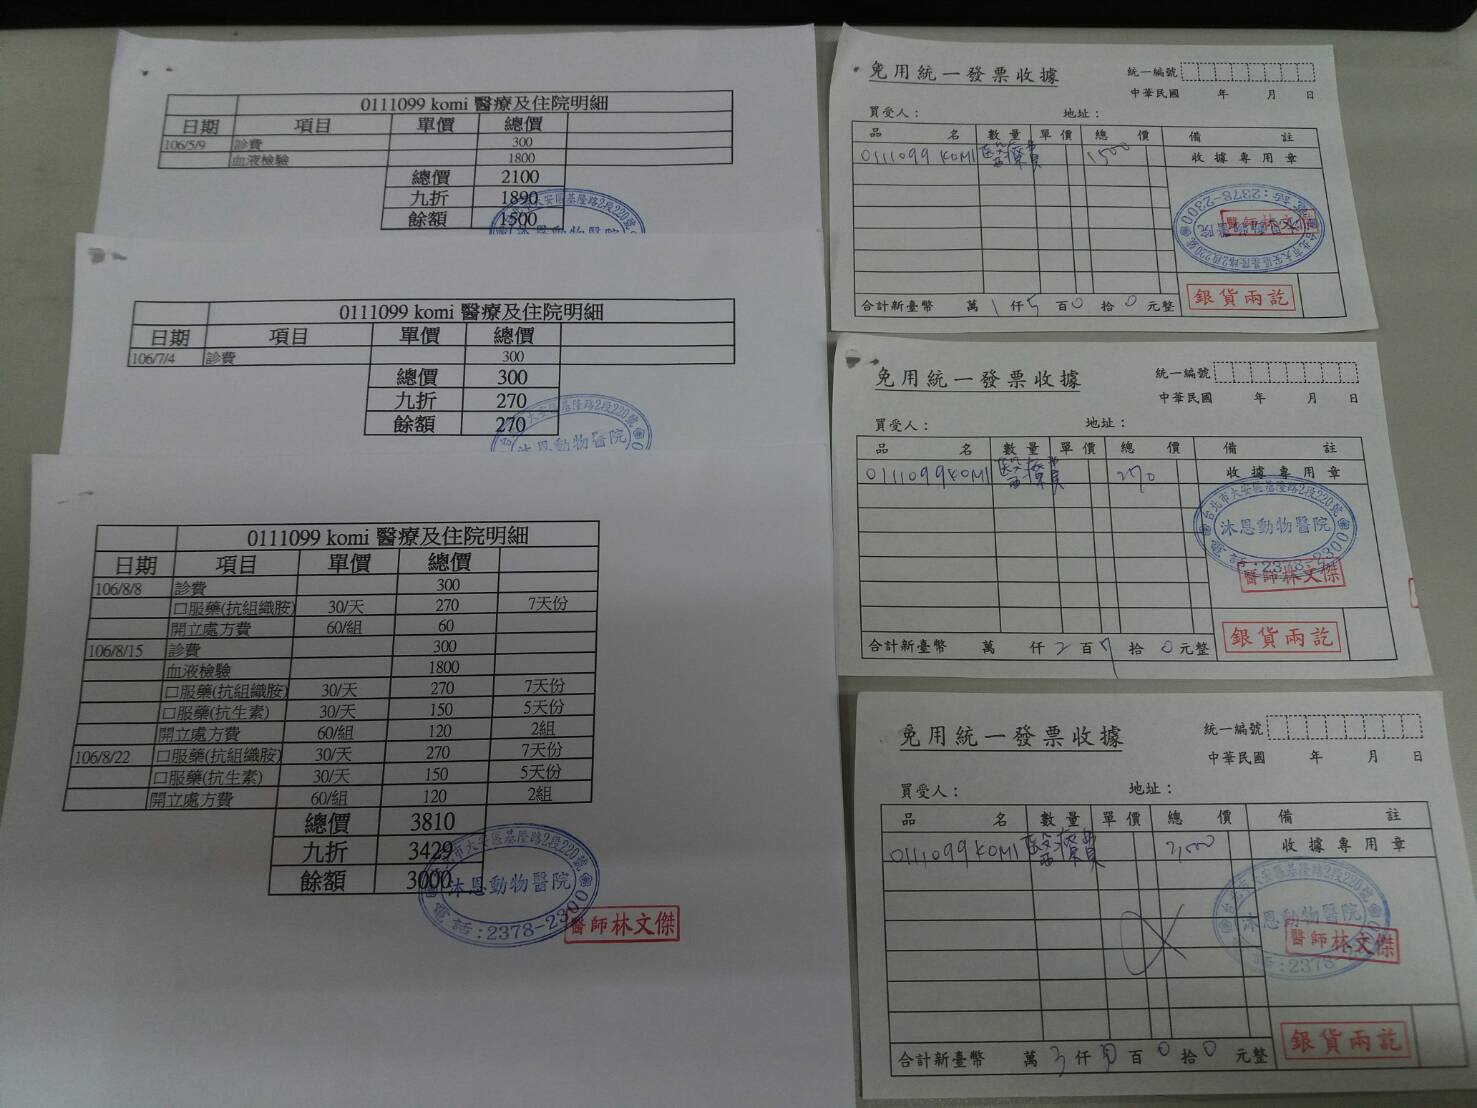 0111099 komi 醫療及住院明細
日期 項目 單價 總價
106/5/9 診費 300
血液檢驗 1800
總價 2100
九折 1890
餘額 1500
0111099 komi 醫療及住院明細
日期 項目 單價 總價
106/7/4 診費 300
總價 300
九折 270
餘額 270
台北市大安區基隆路2段220號
沐恩動物醫院
0111099 komi 醫療及住院明細
日期 項目 單價 總價
106/8/8 診費 300
口服藥(抗組織胺) 30/天 270 7天份
開立處方費 60/組 60
106/8/15 診費 300
血液檢驗 1800
口服藥(抗組織胺) 30/天 270 7天份
口服藥(抗生素) 30/天 150 5天份
開立處方費 60/組 120 2組
106/8/22 口服藥(抗組織胺) 30/天 270 7天份
口服藥(抗生素) 30/天 150 5天份
開立處方費 60/組 120 2組
總價 3810
九折 3429
餘額 3000
台北市大安區基隆路2段220號
沐恩動物醫院
電話:2378-2300
醫師林文傑
免用統一發票收據
統一編號
中華民國 年 月 日
買受人: 地址:
品名 數量 單價 總價 備註
0111099 KOMI 醫療費 1500 收據專用章
台北市大安區基隆路2段220號
電話:2378-2300
醫師林文傑
銀貨兩訖
合計新臺幣 萬 1 仟 5 百 0 拾 0 元整
免用統一發票收據
統一編號
中華民國 年 月 日
買受人: 地址:
品名 數量 單價 總價 備註
0111099 KOMI 醫療費 270 收據專用章
台北市大安區基隆路2段220號
沐恩動物醫院
電話:2378-2300
醫師林文傑
銀貨兩訖
合計新臺幣 萬 仟 2 百 7 拾 0 元整
免用統一發票收據
統一編號
中華民國 年 月 日
買受人: 地址:
品名 數量 單價 總價 備註
0111099 KOMI 醫療費 3,000 收據專用章
沐恩動物醫院
醫師林文傑
銀貨兩訖
合計新臺幣 萬 3 仟 百 0 拾 0 元整